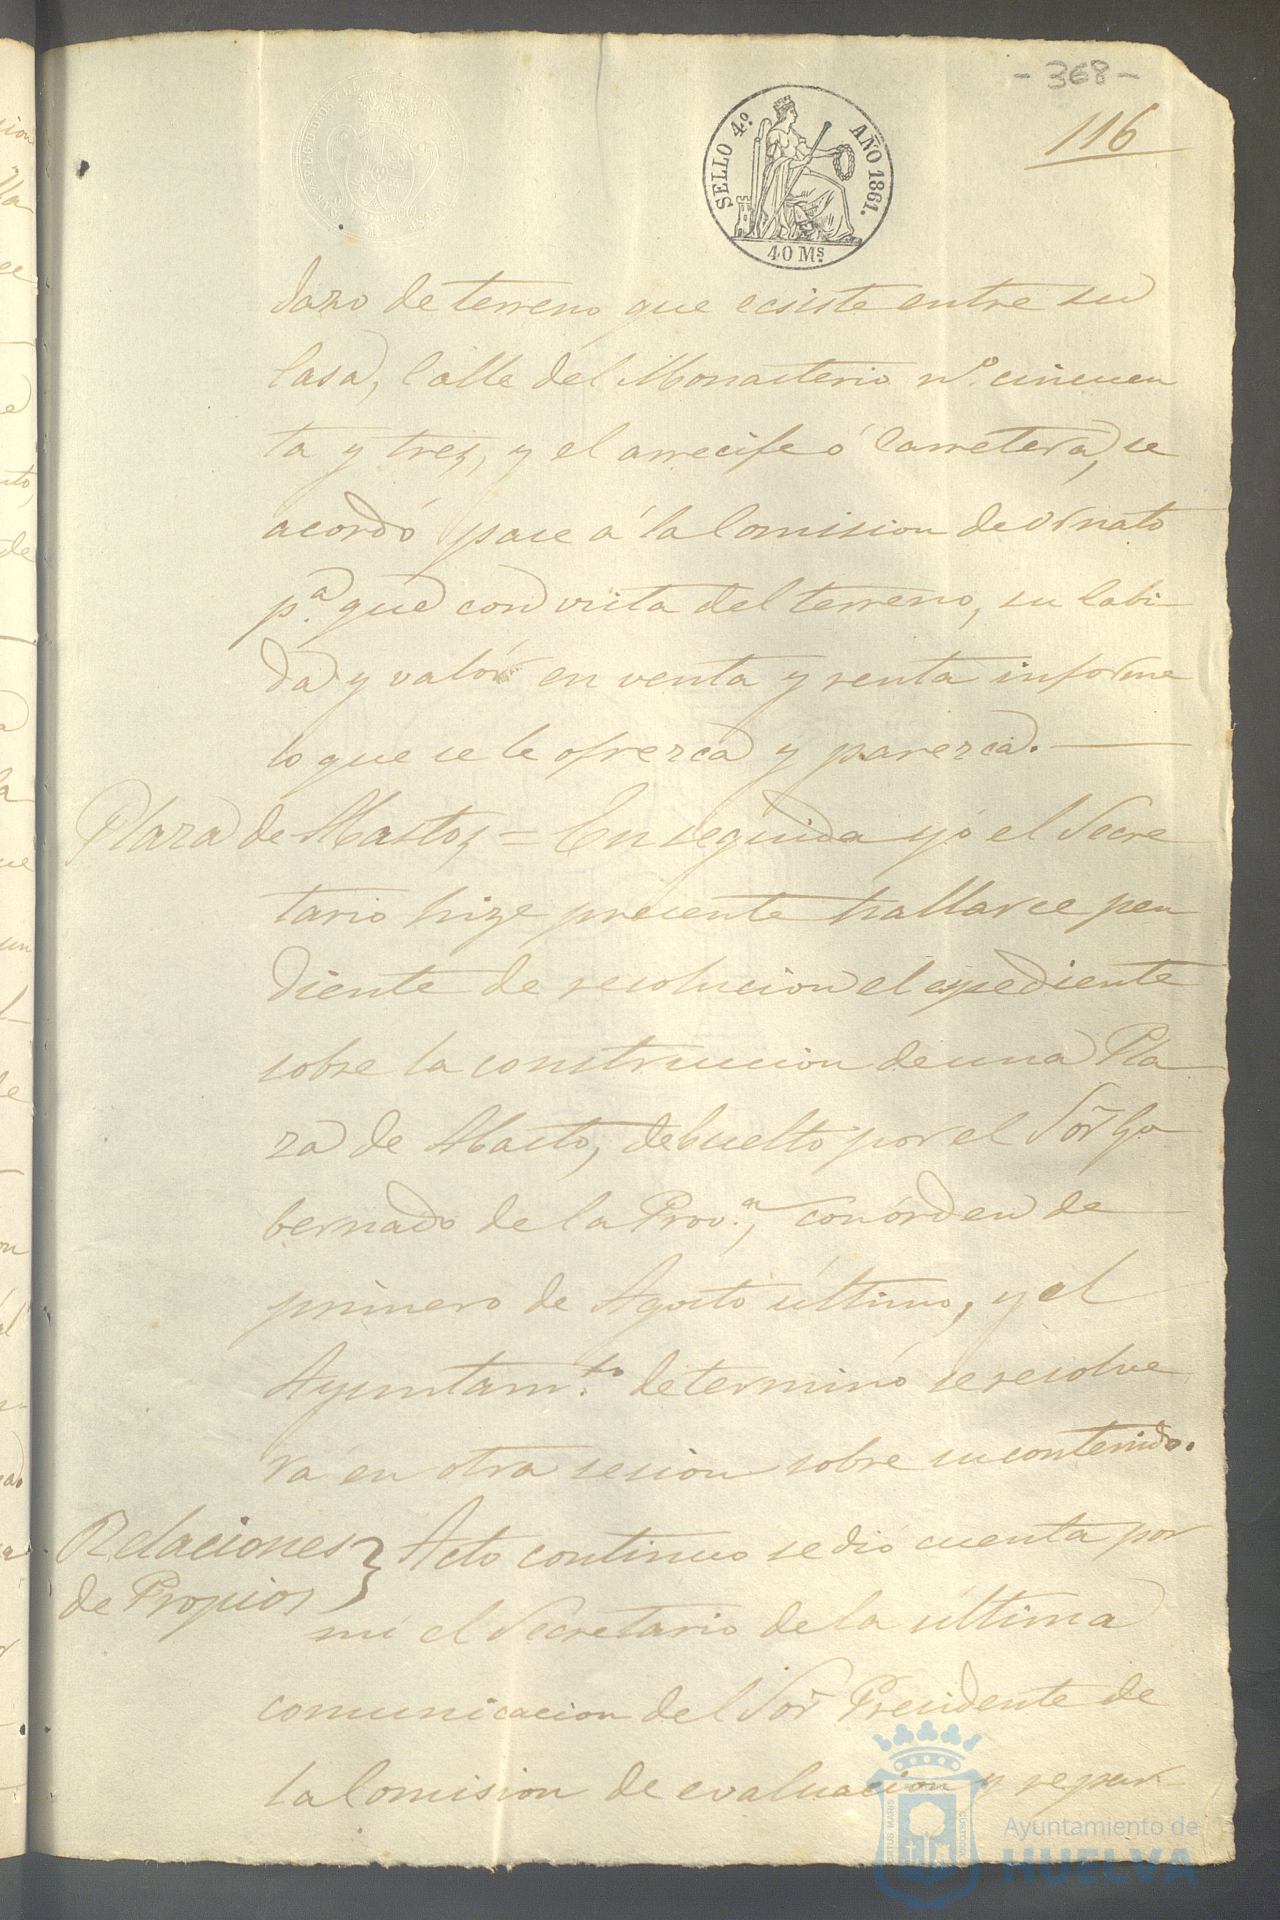 - 368 -
116
SELLO 4.º AÑO 1861.
40 Ms.
dazo de terreno que ecsiste entre su
Casa, Calle del Monasterio nº. cincuen
ta y tres, y el arrecife ó Carretera, se
acordó pase á la Comision de Ornato
p.ª que con vista del terreno, su cabi-
da y valor en venta y renta informe
lo que se le ofrezca y parezca.
Plaza de Abastos = En seguida yó el Secre
tario hize presente hallarse pen
diente de resolucion el espediente
sobre la construccion de una Pla
za de Abasto, debuelto por el Sõr Go
bernado de la Prov.ª, con órden de
primero de Agosto último, y el
Ayuntam.to determinó se resolve
rá en otra sesion sobre su contenido.
Relaciones
de Propios } Acto continuo se dió cuenta por
mi el Secretario de la última
comunicacion del Sõr Presidente de
la Comision de evaluacion y repar
Ayuntamiento de
HUELVA